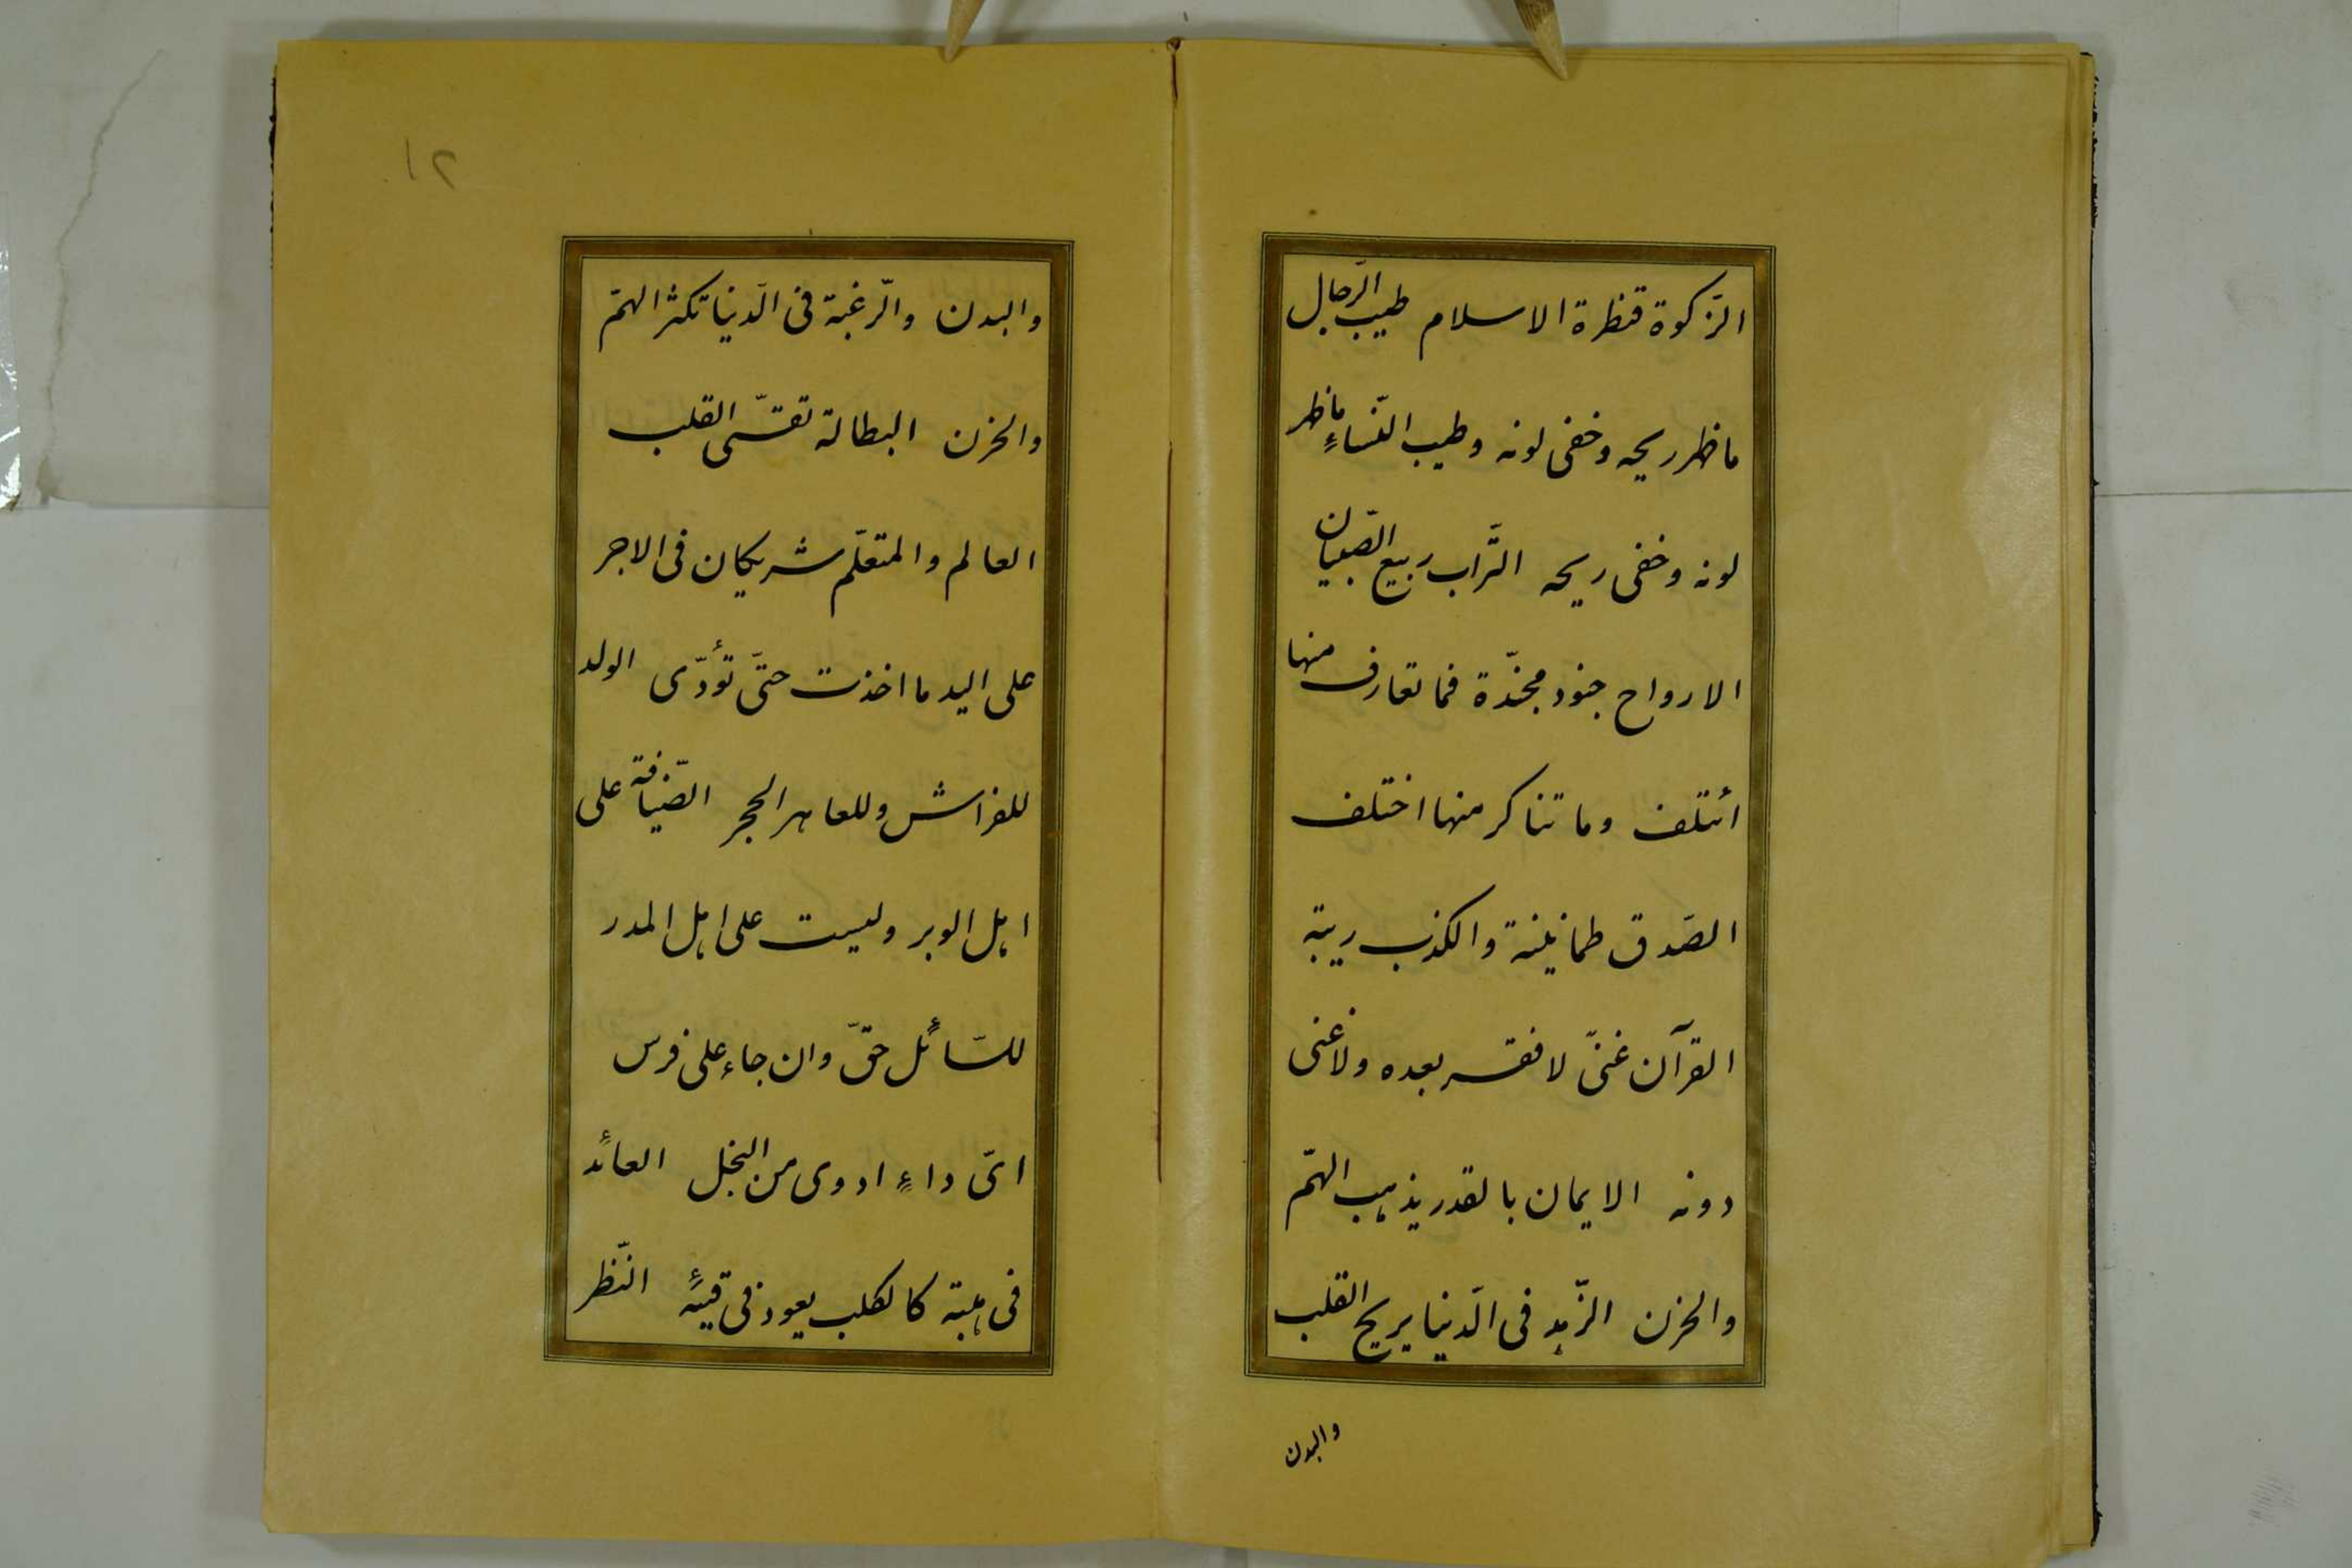 الزّكوة قنطرة الاسلام طيب الرّجال
ما ظهر ريحه وخفى لونه وطيب النّساءِ ما ظهر
لونه وخفى ريحه التّراب ربيع الصّبيان
الارواح جنود مجنّدة فما تعارف منها
أئتلف وما تناكر منها اختلف
الصّدق طمانينة والكذب ريبة
القرآن غنىّ لا فقر بعده ولا غنى
دونه الايمان بالقدر يذهب الهمّ
والحزن الزّهد فى الدّنيا يريح القلب
والبدن
١٢
والبدن والرّغبة فى الدّنيا تكثر الهمّ
والحزن البطالة تقسّى القلب
العالم والمتعلّم شريكان فى الاجر
على اليد ما اخذت حتىّ تؤدّى الولد
للفراش وللعاهر الحجر الضّيافة على
اهل الوبر وليست على اهل المدر
للسّائل حقّ وان جاء على فرس
اىّ داءٍ ادوى من البخل العائد
فى هبته كالكلب يعود فى قيئه النّظر